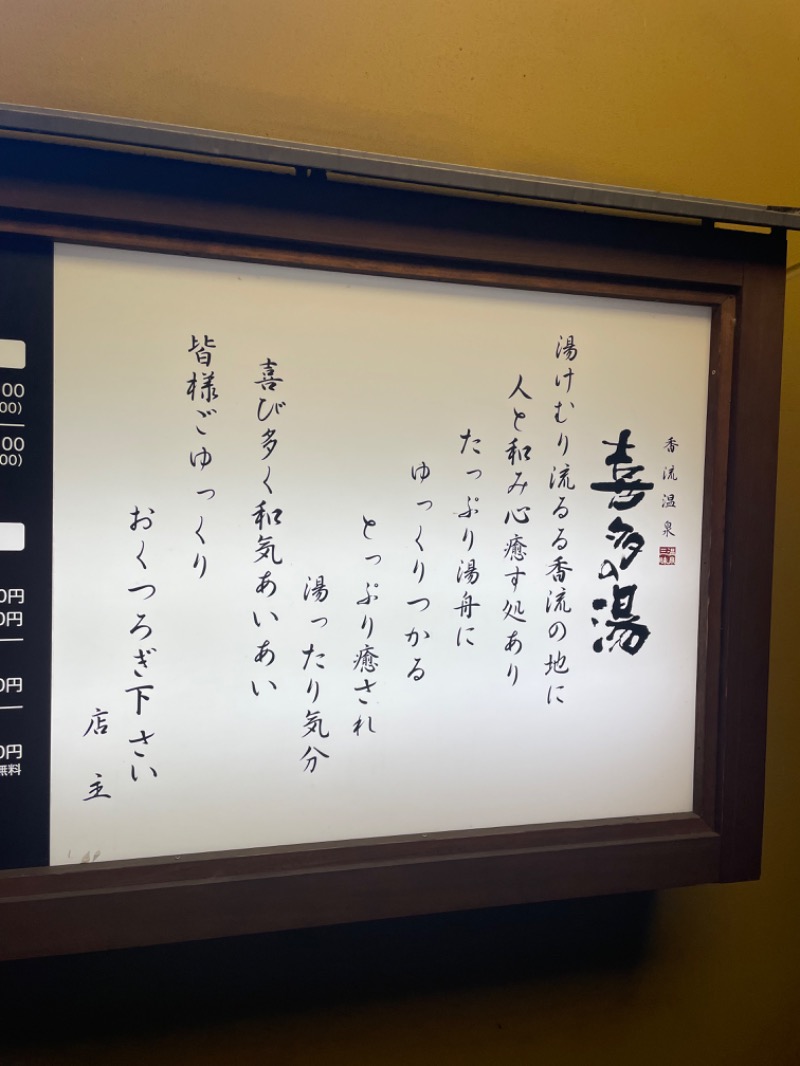 香流温泉
喜多の湯
湯けむり流るる香流の地に
人と和み心癒す処あり
たっぷり湯舟に
ゆっくりつかる
とっぷり癒され
湯ったり気分
喜び多く和気あいあい
皆様ごゆっくり
おくつろぎ下さい
店主
00
00)
00
00)
0円
0円
0円
0円
無料